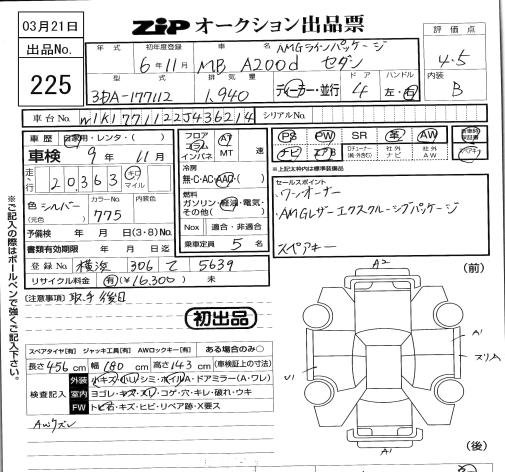 03月21日
ZIP オークション出品票
出品No.
225
年式
初年度登録
車名
ドア
ハンドル
評価点
6年11月
MB A200d
AMGラインパッケージ
セダン
4.5
型式
排気量
3DA-177112
1,940
ディーラー・並行
4
左・右
内装
B
車台No.
W1K1771122J436214
シリアルNo.
車歴
自家用・レンタ・( )
車検 9年 11月
走行 20,363 キロ マイル
色 シルバー
(元色)
カラーNo.
775
内装色
予備検 年 月 日(3・8)No.
書類有効期限 年 月 日迄
登録No. 横浜 306 て 5639
リサイクル料金 有(¥16,300) 未
[注意事項] 取手後日
フロア
コラム
インパネ
AT
MT
速
冷房
無・C・AC・AAC・( )
燃料
ガソリン・軽油・電気・
その他( )
Nox 適合・非適合
乗車定員 5名
PS PW SR 革 AW
ナビ エアB
Dチューナー
(純・外含む)
社外
ナビ
社外
AW
*上記太枠内は標準装備品
セールスポイント
・ワンオーナー
・AMGレザーエクスクルーシブパッケージ
スペアキー
初出品
※ご記入の際はボールペンで強くご記入下さい。
スペアタイヤ[有] ジャッキ工具[有] AWロックキー[有] ある場合のみ○
長さ456cm 幅180cm 高さ143cm (車検証上の寸法)
検査記入
外装 小キズ・小U・シミ・ホイルA・ドアミラー(A・ワレ)
室内 ヨゴレ・キズ・スリ・コゲ・穴・キレ・破れ・ウキ
FW トビ石・キズ・ヒビ・リペア跡・X要ス
AWクスレ
(前)
A2
A1
スリA
U1
A1
(後)